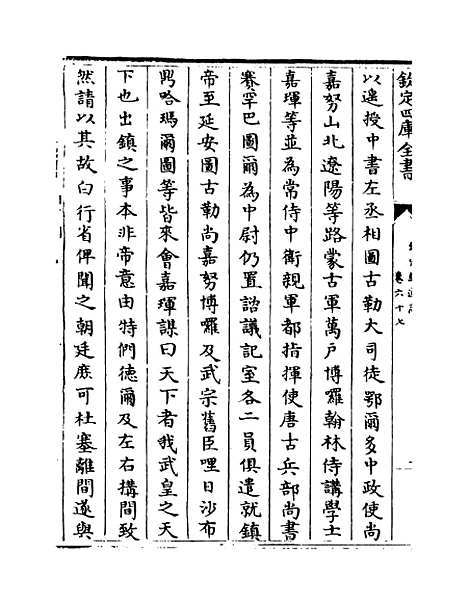 欽定四庫全書
卷六十七
以遥授中書左丞相圖古勒大司徒鄂爾多中政使尚
嘉努山北遼陽等路蒙古軍萬户博囉翰林侍講學士
嘉琿等並為常侍中衛親軍都指揮使唐古兵部尚書
賽罕巴圖爾為中尉仍置諮議記室各二員俱遣就鎮
帝至延安圖古勒尚嘉努博囉及武宗舊臣哩日沙布
鼎哈瑪爾圖等皆來會嘉琿謀曰天下者我武皇之天
下也出鎮之事本非帝意由特們德爾及左右構間致
然請以其故白行省俾聞之朝廷庶可杜塞離間遂與